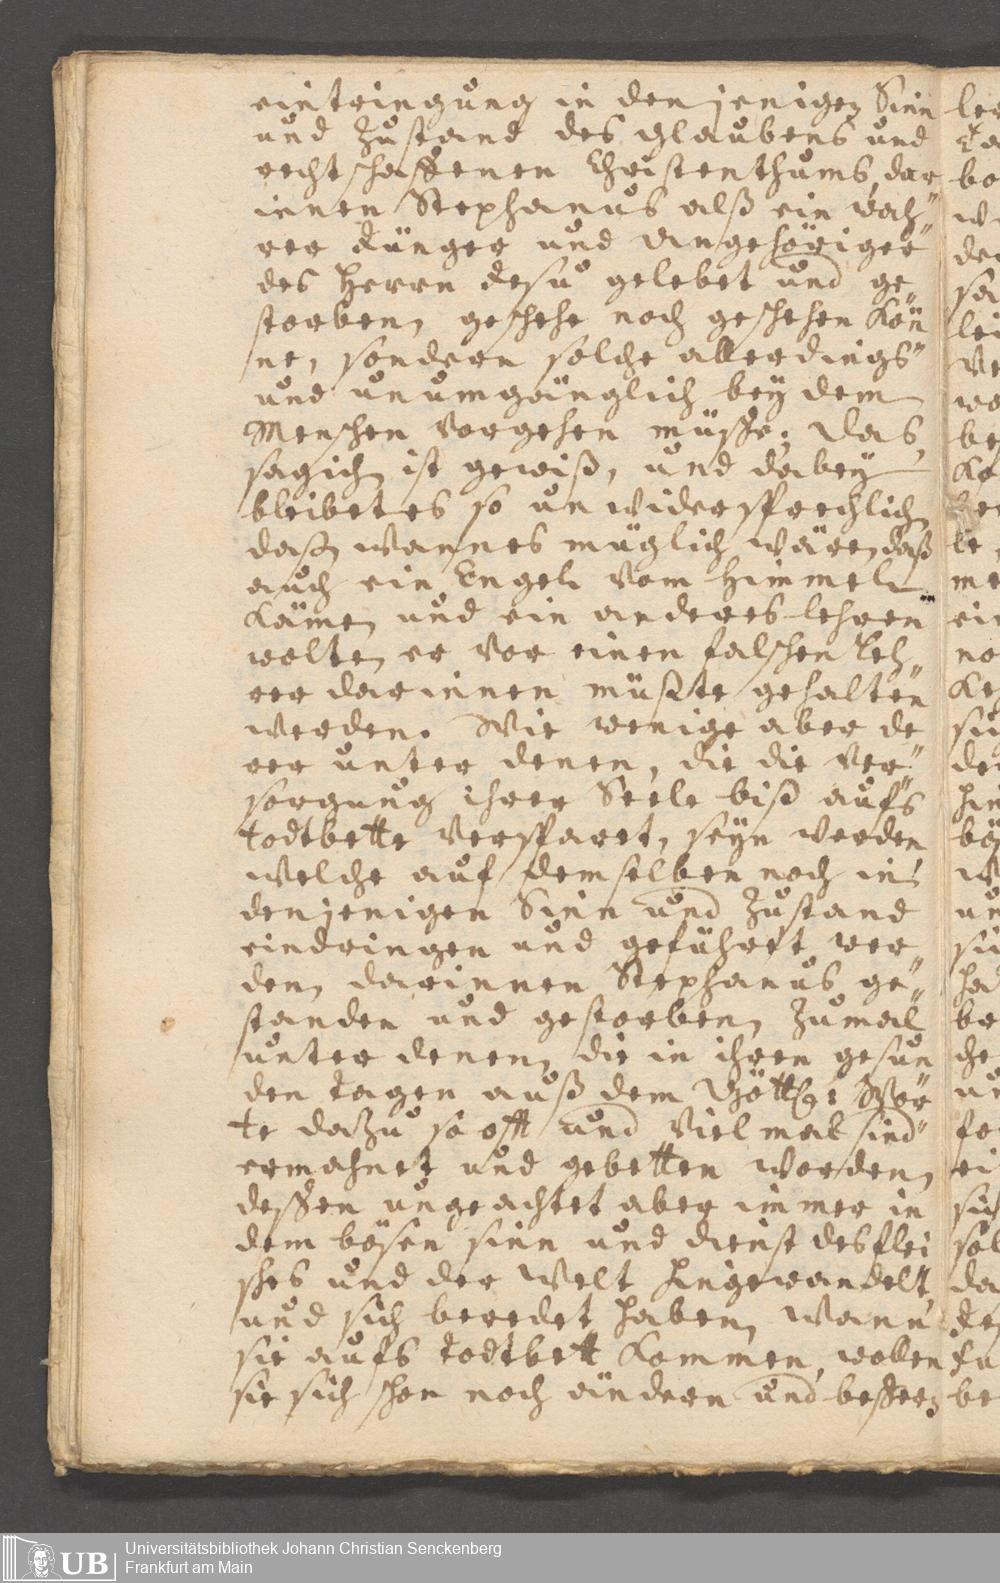 eintringung in denjenigen Sinn
und Zustand des Glaubens und
rechtschaffenen Christenthums, dar
innen Stephanus alß ein wah„
rer Jünger und angehöriger
des Herrn Jesu gelebet und ge„
storben, geschehe noch geschehen kön„
ne, sondern solche allerdings
und unumgänglich bey dem
Menschen vorgehen müsse; Das
sag ich, ist gewiß, und dabey
bleibet es so unwidersprechlich,
daß, wann es müglich wäre, daß
auch ein Engel vom Himmel
käme, und ein anderes lehren
wolte, er vor einen falschen Leh„
rer darinnen müßte gehalten
werden. Wie wenige aber de
rer unter denen, die die Ver„
sorgung ihrer Seele biß aufs
Todtbette versparet, seyn werden
welche auf demselben noch in
denjenigen Sinn und Zustand
eindringen und geführet wer„
den, darinnen Stephanus ge„
standen und gestorben, Zumal
unter denen, die in ihren gesun
den Tagen auß dem Göttl: Wor
te dazu so offt und vielmal sind
ermahnet und gebetten worden,
dessen ungeachtet aber immer in
dem bösen sinn und dienst des flei
sches und der Welt hingewandelt,
und sich beredet haben, Wann
sie aufs Todtbett kommen, wollen
sie sich schon noch ändern und bessern,
UB
Universitätsbibliothek Johann Christian Senckenberg
Frankfurt am Main